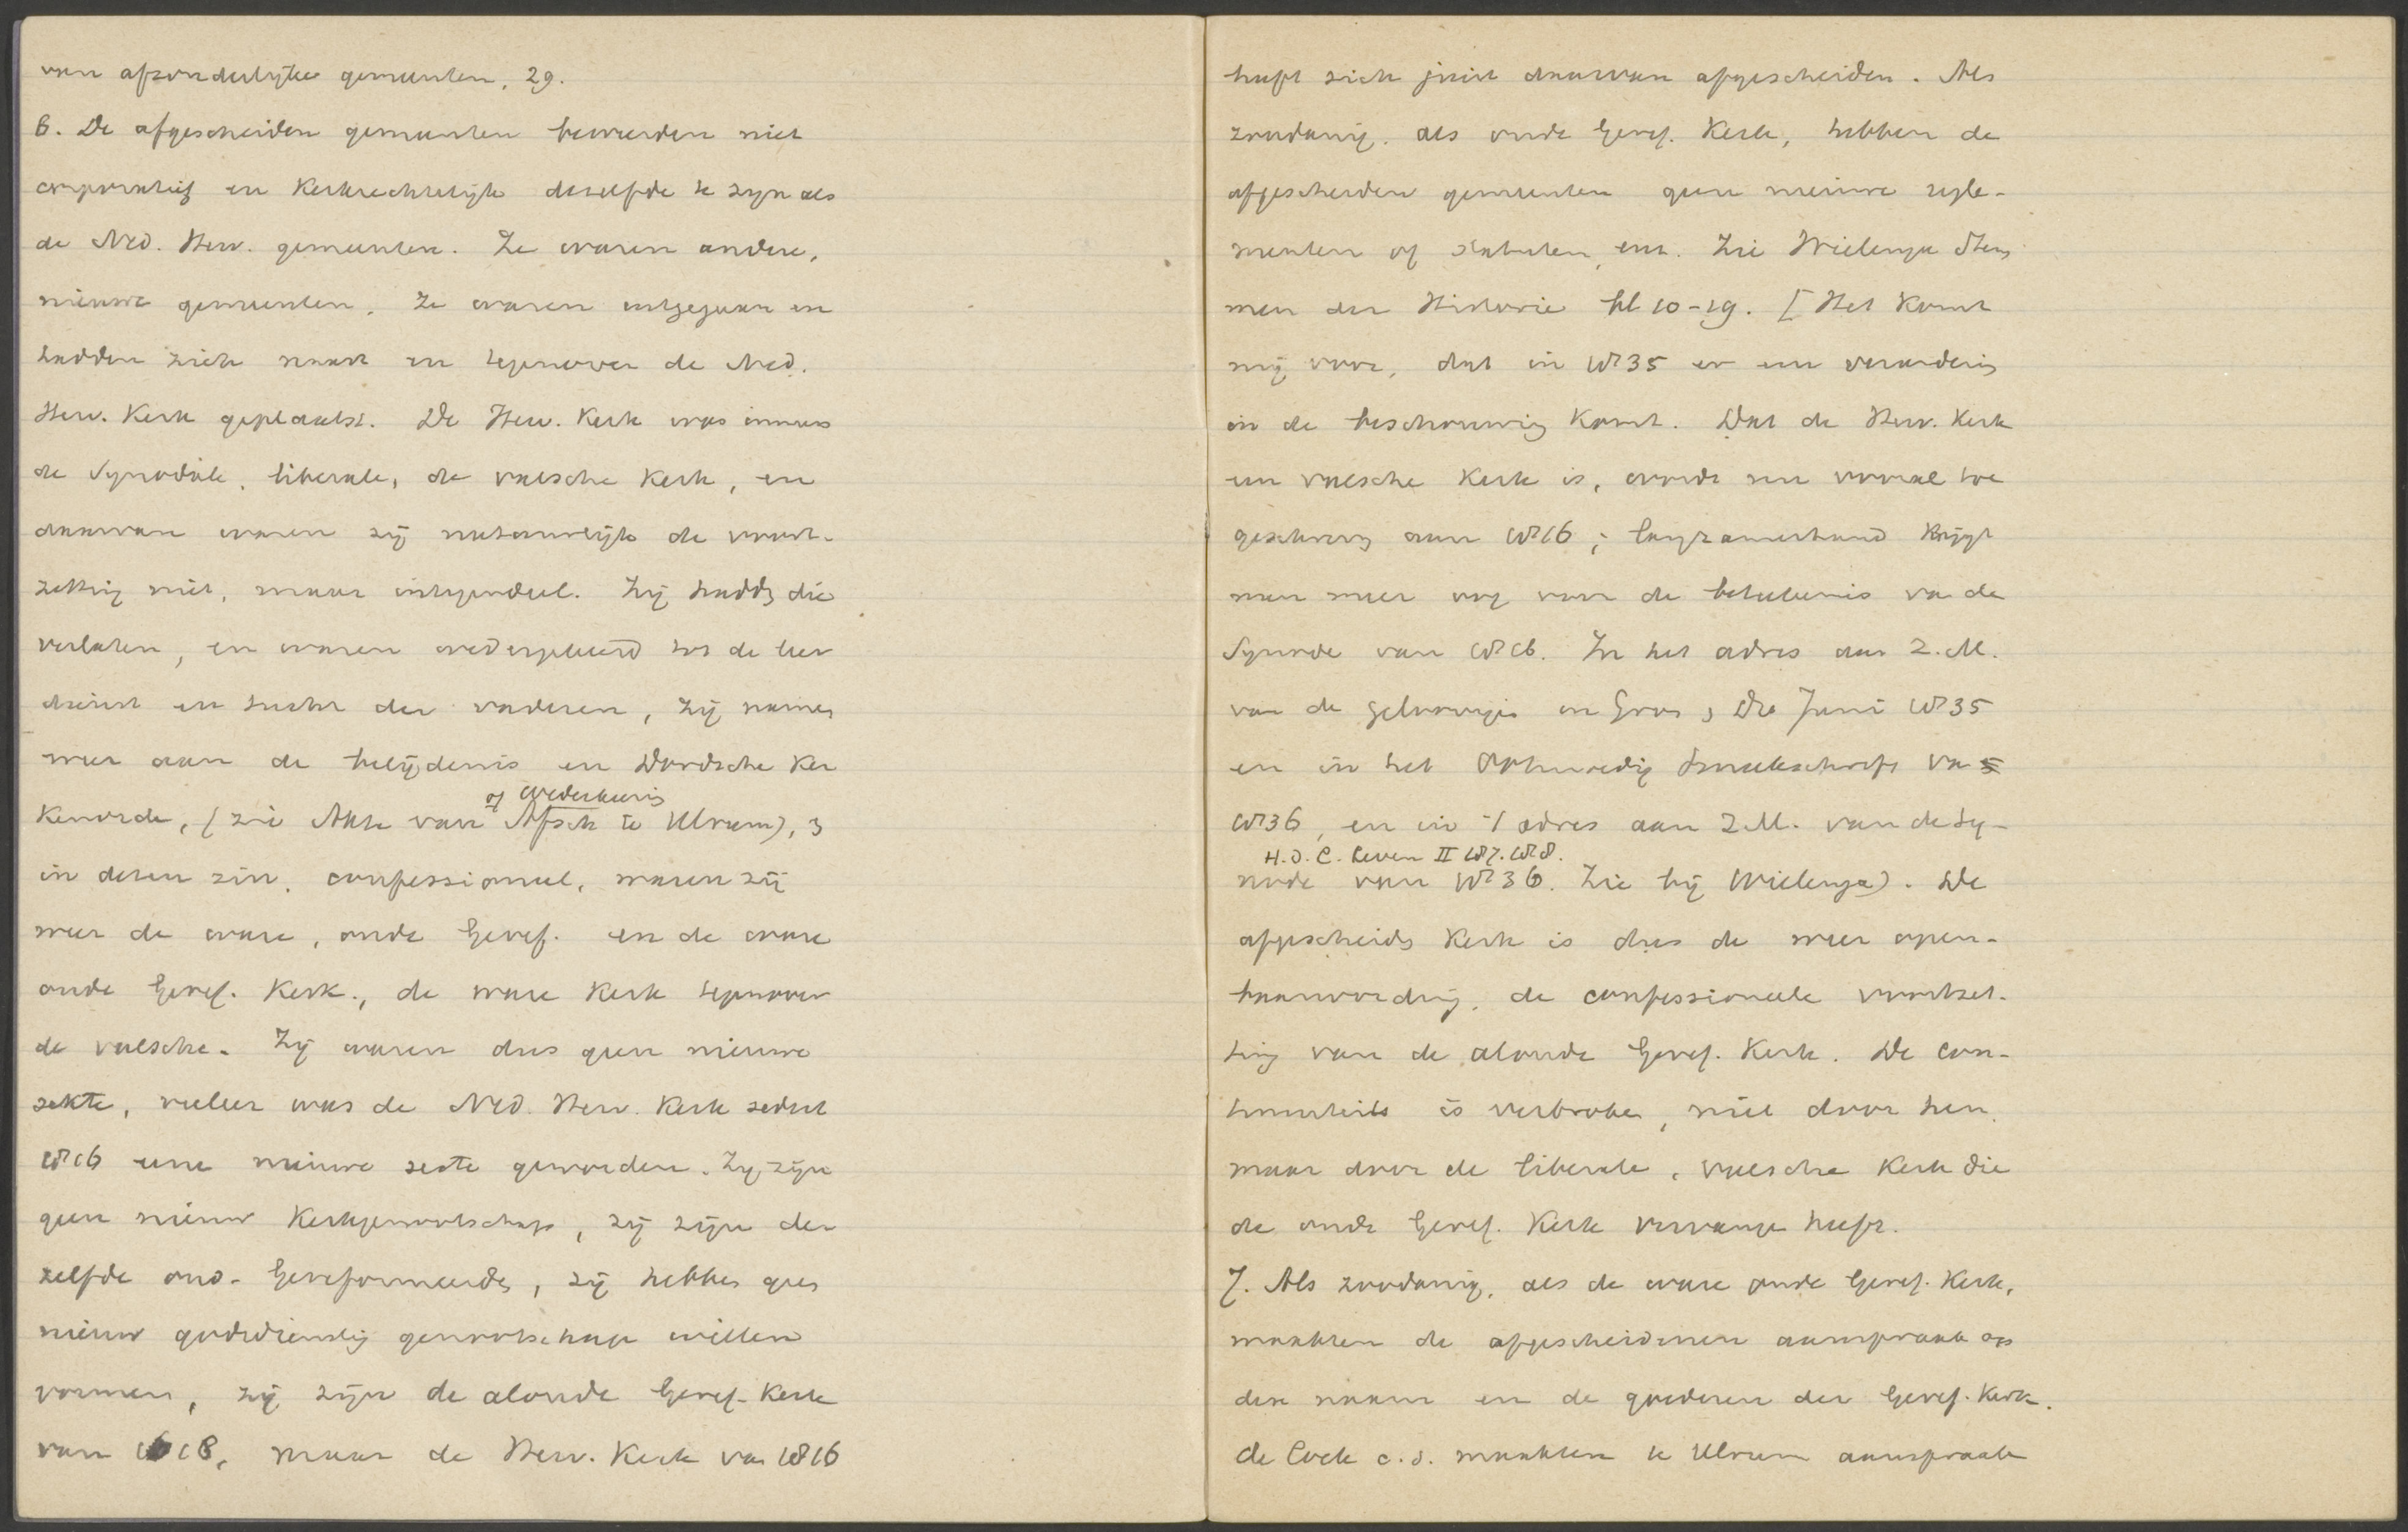 van afzonderlijke gemeenten, 29.
6. De afgescheiden gemeenten beweerden niet
corporatief en Kerkrechtelijk dezelfde te zijn als
de Ned. Herv. gemeenten. Ze waren andere,
nieuwe gemeenten. Ze waren uitgegaan en
hadden zich naast en tegenover de Ned.
Herv. Kerk geplaatst. De Herv. Kerk was immers
de Synodale, liberale, de valsche Kerk, en
daarvan waren zij natuurlijk de voort-
zetting niet, maar integendeel. Zij hadden die
verlaten, en waren wedergekeerd tot de leer
dienst en tucht der vaderen, zij namen
weer aan de belijdenis en Dordsche Ker
of Wederkeering
Kenorde, (zie Akte van Afsch te Ulrum), &
in dezen zin, confessioneel, waren zij
weer de ware, oude Geref. en de ware
oude Geref. Kerk, de ware Kerk tegenover
de valsche. Zij waren dus geen nieuwe
sekte, veeleer was de Ned. Herv. Kerk sedert
1816 eene nieuwe secte geworden. Zij zijn
geen nieuw Kerkgenootschap, zij zijn de
zelfde oud-Gereformeerden, zij hebben geen
nieuw godsdienstig genootschap willen
vormen, zij zijn de aloude Geref. Kerk
van 1618, maar de Herv. Kerk van 1816
heeft zich juist daarvan afgescheiden. Als
zoodanig, als oude Geref. Kerk, hebben de
afgescheiden gemeenten geen nieuwe regle-
menten of statuten, enz. Zie Wielenga Stem
men der Historie bl 10-19. [Het komt
mij voor, dat in 1835 er een verandering
in de beschouwing komt. Dat de Herv. Kerk
een valsche Kerk is, wordt nu vooral toe
geschreven aan 1816; langzamerhand krijgt
men meer oog voor de beteekenis van de
Synode van 1816. In het adres aan Z.M.
van de geloovigen in Gron & Dre Juni 1835
en in het Ootmoedig Smeekschrift van
1836, en in 't adres aan Z.M. van de Sy-
H. d. C. Leven II 187. 188.
node van 1836. Zie bij Wielenga). De
afgescheiden Kerk is dus de weer open-
baarwording, de confessioneele voortzet-
ting van de aloude Geref. Kerk. De con-
tinuiteit is verbroken, niet door hen,
maar door de liberale, valsche Kerk die
de oude Geref. Kerk vervangen heeft.
7. Als zoodanig, als de ware oude Geref. Kerk,
maakten de afgescheidenen aanspraak op
den naam en de goederen der Geref. Kerk.
De Cock c.s. maakten te Ulrum aanspraak